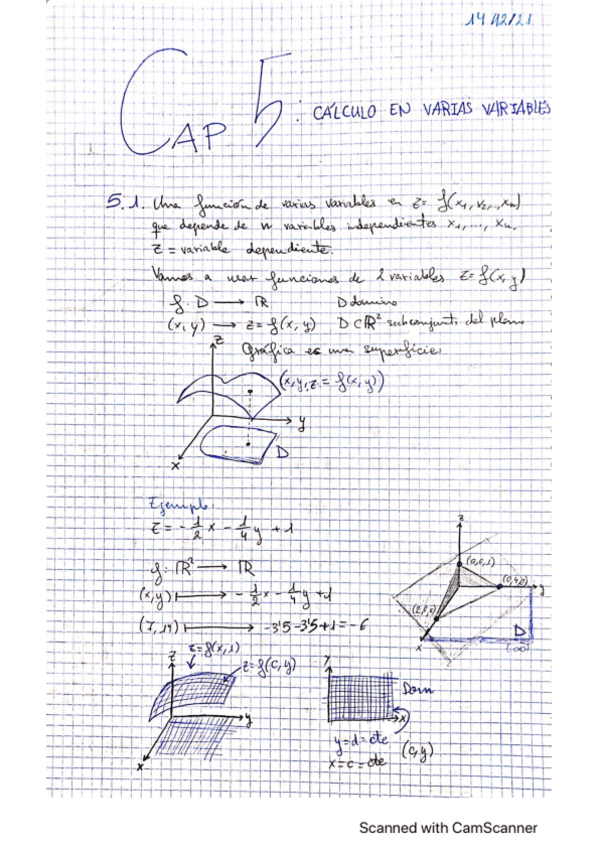 14/12/21
CAP 5: CÁLCULO EN VARIAS VARIABLES
5.1. Una función de varias variables es z = f(x₁, x₂,..., xₙ)
que depende de n variables independientes x₁, ..., xₙ.
z = variable dependiente.
Vamos a usar funciones de 2 variables z = f(x, y)
f: D → ℝ D dominio
(x, y) → z = f(x, y) D ⊂ ℝ² subconjunto del plano
Gráfica es una superficie.
z
(x, y, z = f(x, y))
y
D
x
Ejemplo:
z = -1/2 x - 1/4 y + 1
f: ℝ² → ℝ
(x, y) ↦ -1/2 x - 1/4 y + 1
(7, 14) ↦ -3'5 - 3'5 + 1 = -6
z
(0,0,1)
(0,4,0)
y
(2,0,0)
x
D
(∞)
z
z = f(x, 1)
z = f(c, y)
y
x
y
Dom
x
y = d = cte
x = c = cte
(c, y)
Scanned with CamScanner